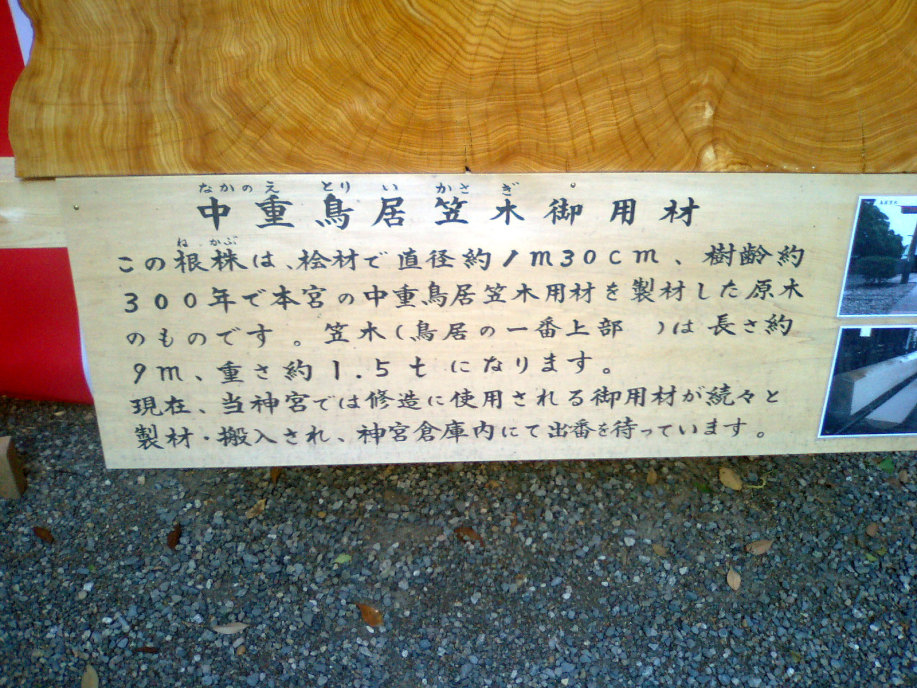 なかのえ とりい かさぎ
中重鳥居笠木御用材
ねかぶ
この根株は、桧材で直径約1m30cm、樹齢約
300年で本宮の中重鳥居笠木用材を製材した原木
のものです。笠木(鳥居の一番上部 )は長さ約
9m、重さ約1.5tになります。
現在、当神宮では修造に使用される御用材が続々と
製材・搬入され、神宮倉庫内にて出番を待っています。